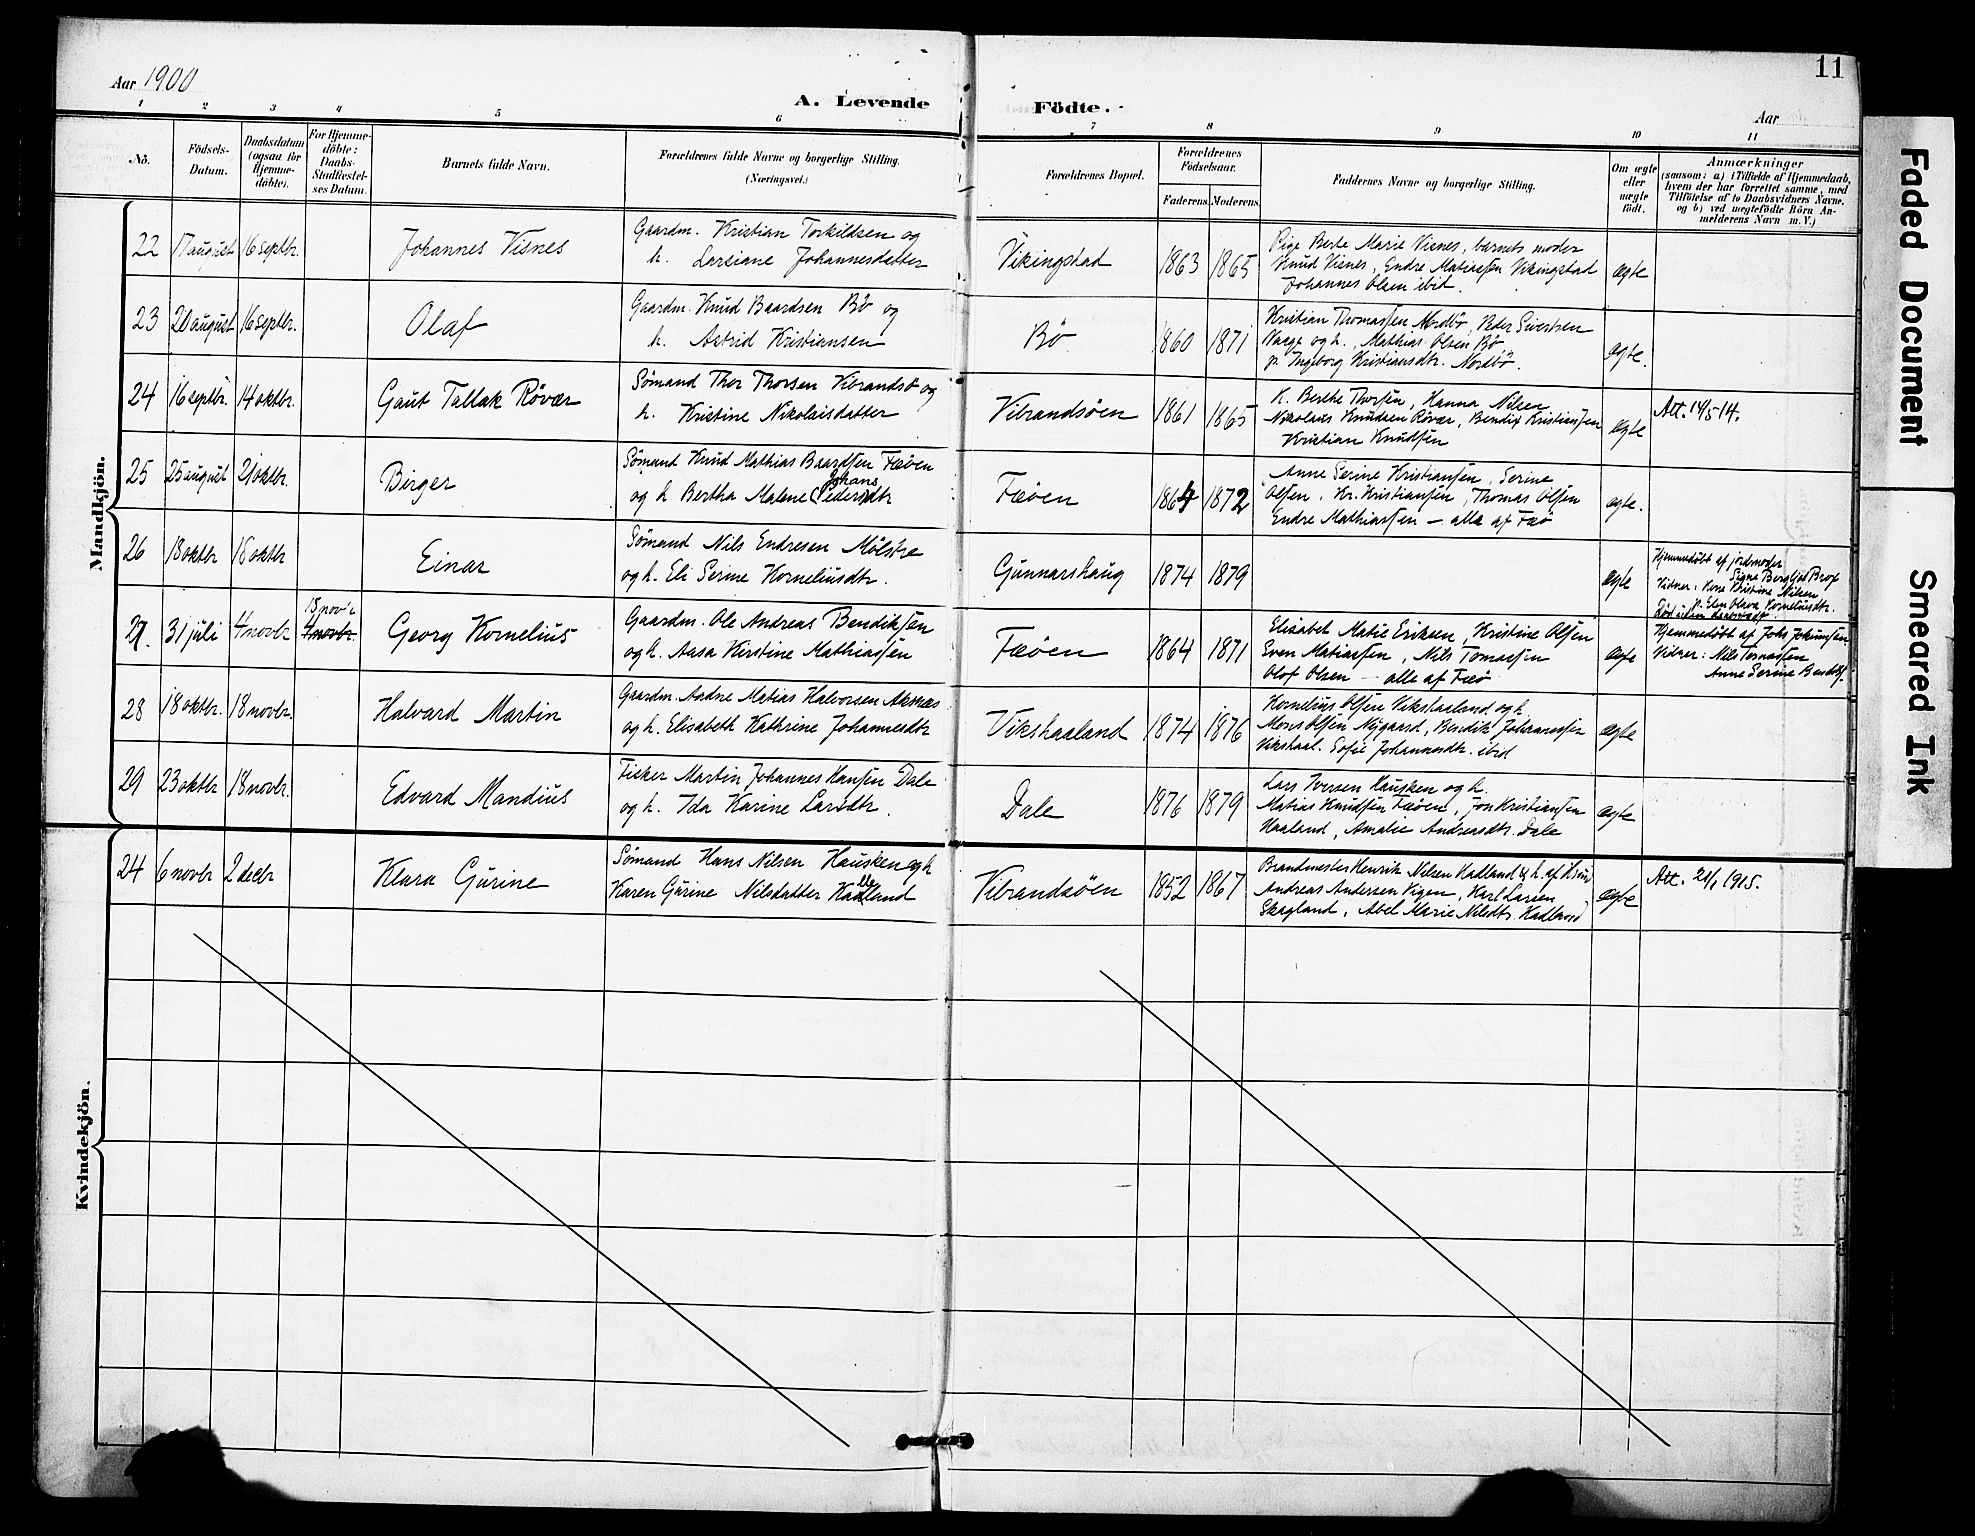 11
Aar 1900
A. Levende Födte.
Aar
1 2 3 4 5 6 7 8 9 10 11
No.
Födsels-
Datum.
Daabsdatum
(ogsaa for
Hjemme-
döbte).
For Hjemme-
döbte:
Daabs-
Stadfæstel-
ses Datum.
Barnets fulde Navn.
Forældrenes fulde Navne og borgerlige Stilling.
(Næringsvei.)
Forældrenes Bopæl.
Forældrenes
Födselsaar.
Faderens. Moderens.
Faddernes Navne og borgerlige Stilling.
Om ægte
eller
uægte
födt.
Anmærkninger
(saasom: a) i Tilfælde af Hjemmedaab,
hvem der har forrettet samme, med
Tilföielse af to Daabsvidners Navne.
og b) ved uegtefödte Börn An-
melderens Navn m. V.)
Mandkjön.
22 17 august 16 septbr. Johannes Visnes
Gaardm. Kristian Torkildsen og
h. Larsiane Johannesdatter
Vikingstad 1863 1865
Pige Berte Marie Visnes, barnets moder
Knud Visnes, Endre Matiassen Vikingstad
Johannes Olsen ibid.
ægte
23 20 august 16 septbr. Olaf
Gaardm. Knud Baardsen Bö og
h. Astrid Kristiansen
Bö 1860 1871
Kristian Thomassen Nordbö, Peder Sivertsen
Vaage og h., Mathias Olsen Bö
p. Ingeborg Kristiansdtr. Nordbö.
ægte.
24 16 septbr. 14 oktbr. Gaut Tallak Rövær
Sömand Thor Thorsen Vibrandsö og
h. Kristine Nikolaisdatter
Vibrandsöen 1861 1865
K. Berthe Thorsen, Hanna Nilsen
Nikolaus Knudsen Rövær, Bendix Kristiansen
Kristian Knudsen
ægte
Att. 14/5 14.
25 25 august 21 oktbr. Birger
Sömand Knud Mathias Baardsen Fæöen
og h. Bertha Malene (Peders)dtr
Johans
Fæöen 1864 1872
Anne Serine Kristiansen, Serine
Olsen, Kr. Kristiansen, Thomas Olsen
Endre Mathiassen — alle af Fæö
ægte.
26 18 oktbr 18 oktbr Einar
Sömand Nils Endresen Mölstre
og h. Eli Serine Korneliusdtr.
Gunnarshaug 1874 1879
ægte
Hjemmedöbt af jordmoder
Signe Bergljot Brox
Vidner: Kone Kristine Nilsen
p. Elen Olava Korneliusdtr.
27. 31 juli 4 novbr
18 novbr
4 novbr. Georg Kornelius
Gaardm. Ole Andreas Bendiksen
og h. Aasa Kirstine Mathiassen
Fæöen 1864 1871
Elisabet Matie Eriksen, Kristine Olsen
Sven Matiassen, Nils Tomassen
Olof Olsen — alle af Fæö
ægte
Hjemmedöbt af Johs Jokumsen
Vidner: Nils Tomassen
Anne Serine Bendiks.
28 18 oktbr. 18 novbr. Halvard Martin
Gaardm. Aadne Matias Halvorsen Aksnes
og h. Elisabeth Kathrine Johannesdtr
Vikshaaland 1874 1876
Kornelius Olsen Vikshaaland og h.
Mons Olsen Nygaard, Bendik Johannessen
Vikshaal. Sofie Johannesdtr. ibid
ægte
29 23 oktbr 18 novbr. Edvard Mandius
Fisker Martin Johannes Hansen Dale
og h. Ida Karine Larsdtr.
Dale 1876 1879
Lars Iversen Hausken og h.
Matias Knudsen Fæöen, Jon Kristiansen
Haaland, Amalie Andreasdtr. Dale
ægte
Kvindekjön.
24 6 novbr 2 decbr Klara Gurine
Sömand Hans Nilsen Hausken og h
Karen Gurine Nilsdatter Kadland
Vibrandsöen 1852 1867
Brandmester Henrik Nilsen Kadland & h. af Hsund
Andreas Andersen Vigen, Karl Larsen
Skagland, Abel Marie Nilsdtr. Kadland
ægte
Att. 21/1 1915.
Faded Document
Smeared Ink